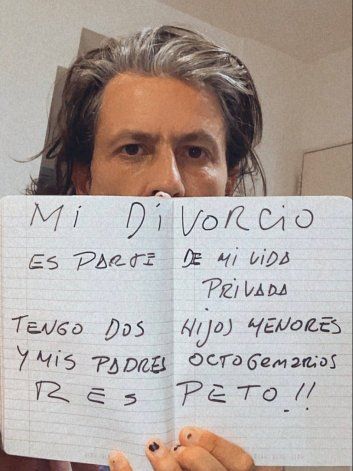 MI DIVORCIO
ES PARTE DE MI VIDA
PRIVADA
TENGO DOS HIJOS MENORES
Y MIS PADRES OCTOGEMARIOS
RESPETO!!